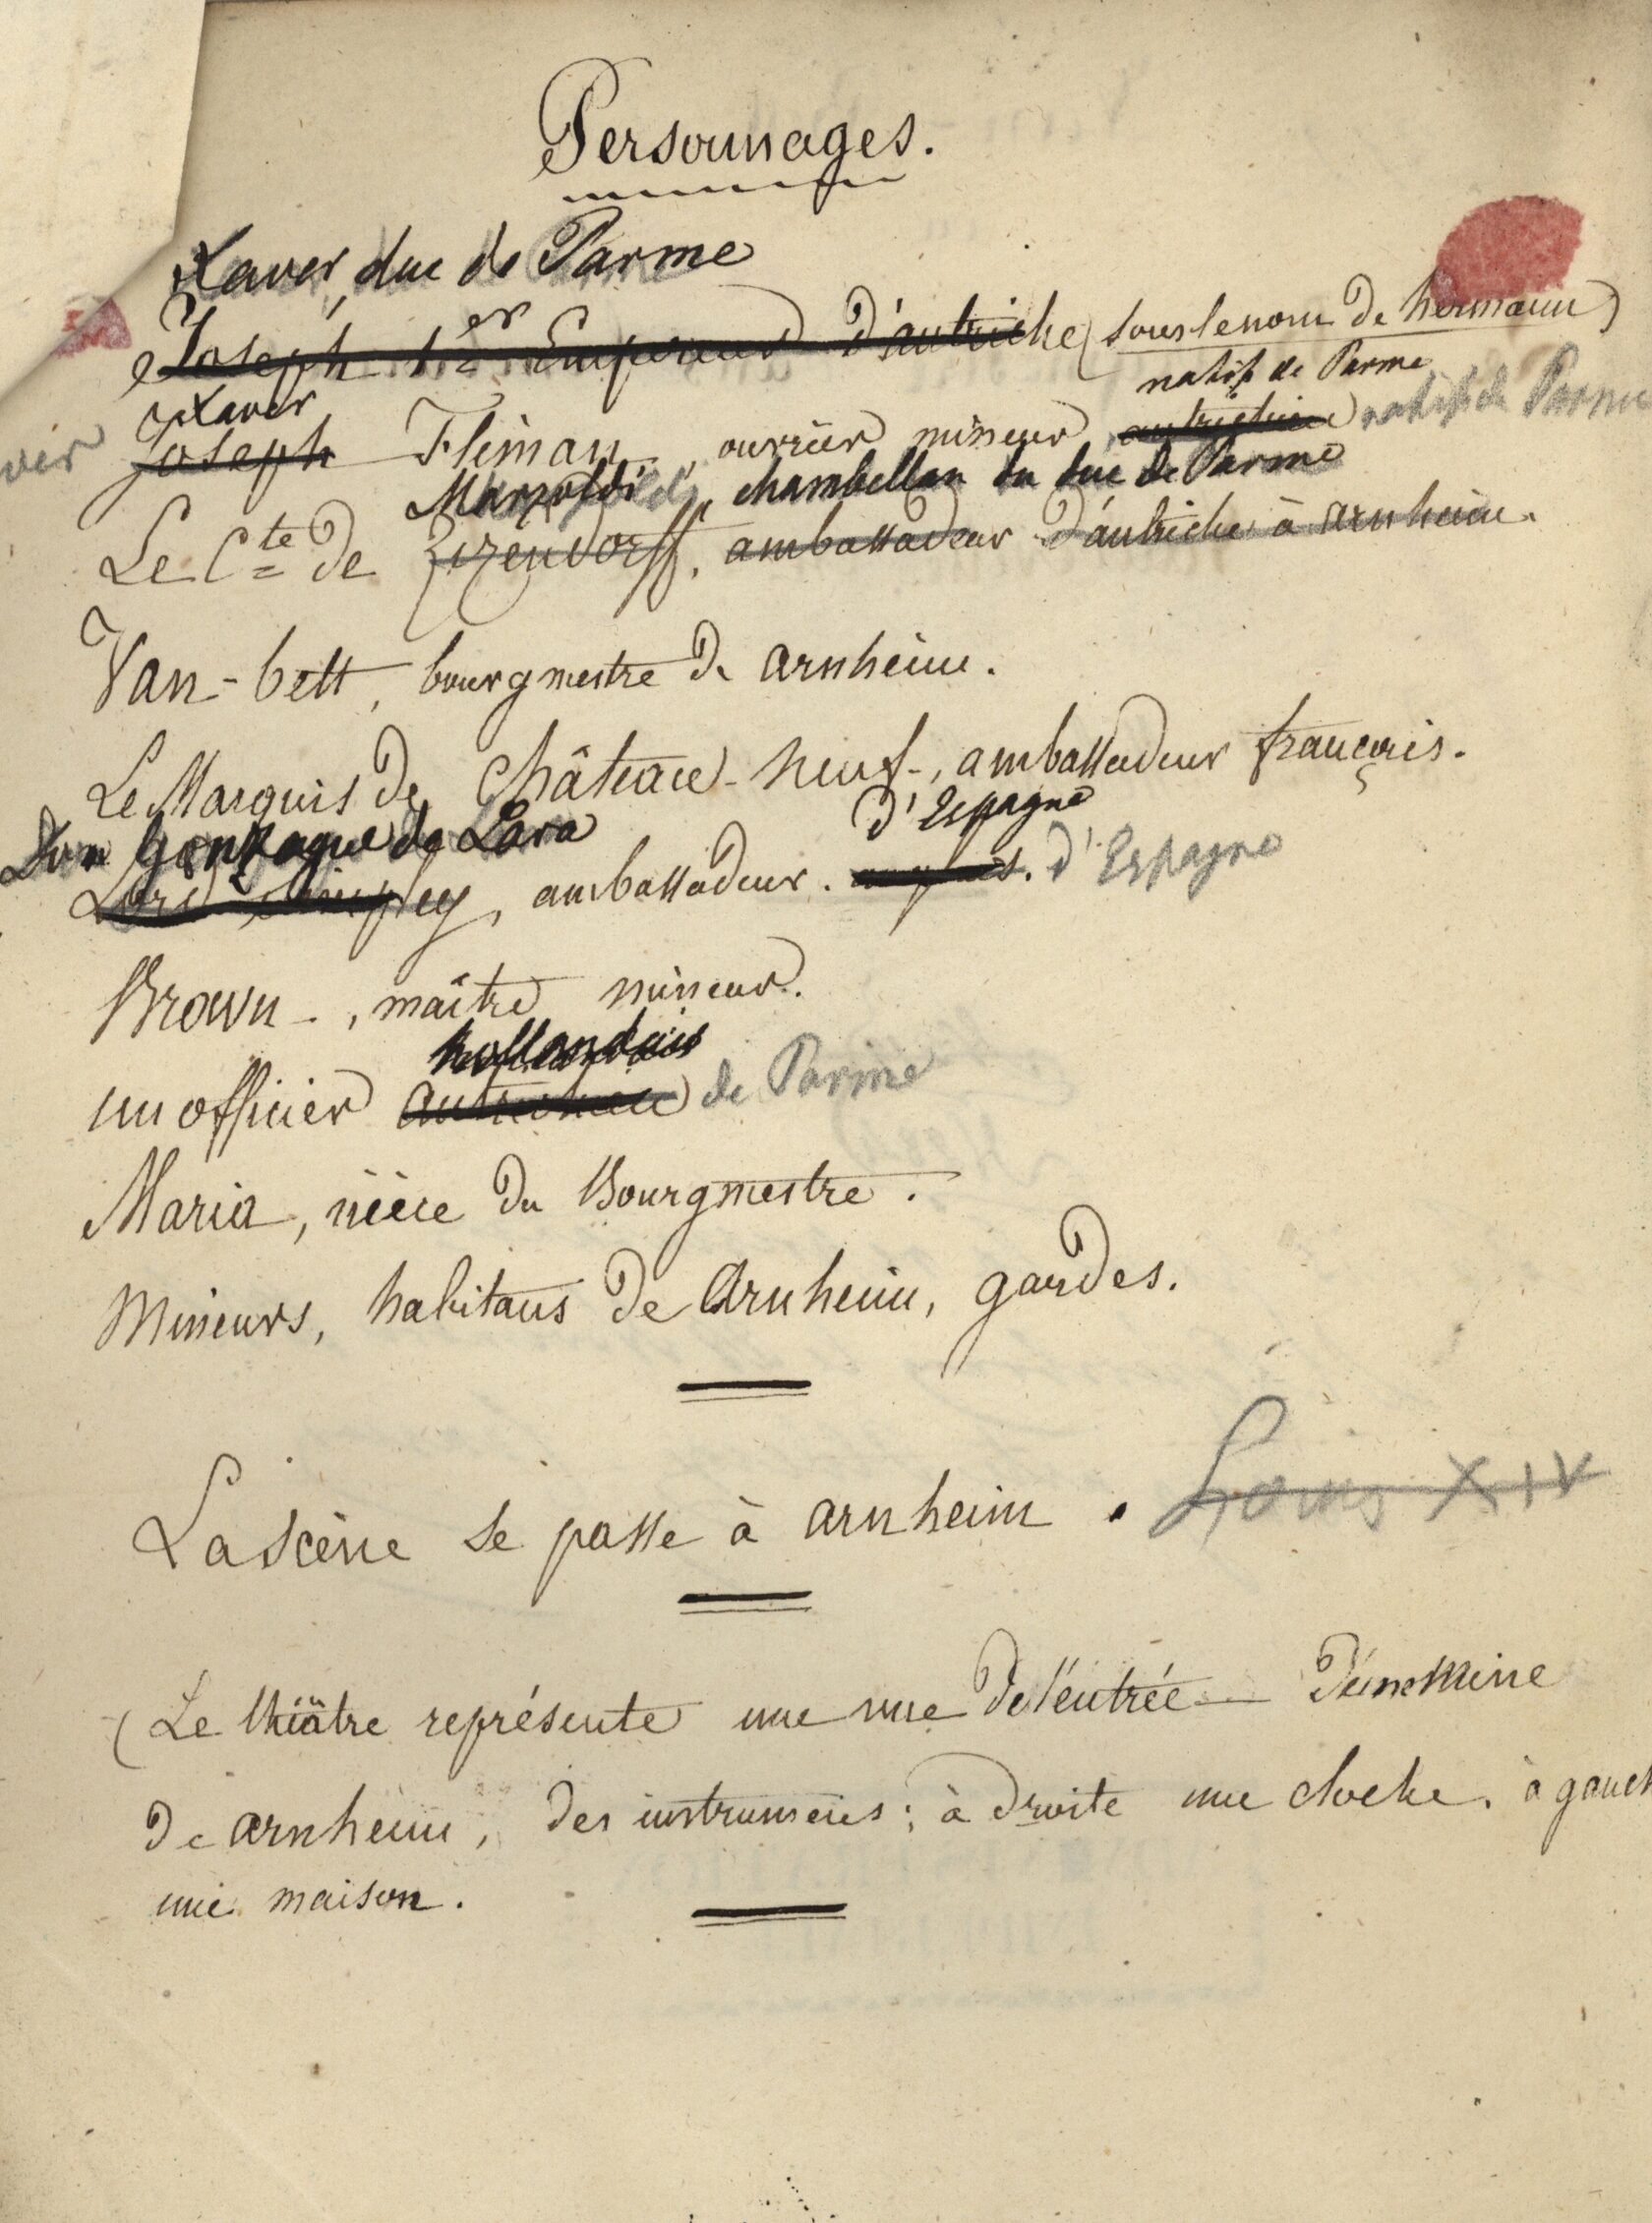 Personnages.
Xaver, duc de Parme
Joseph 1er Empereur d'autriche (sous le nom de hermann)
Xaver natif de Parme
Joseph Fliman, ouvrier mineur autrichien natif de Parme
Marzoldi, chambellan du duc de Parme
Le Cte de Zizendorff, ambassadeur d'autriche à arnheim.
Van-bett, bourgmestre de arnheim.
Le Marquis de Château-neuf, ambassadeur français.
Don Gonzague de Lara d'Espagne
Lord ambassadeur. anglais. d'Espagne
Brown, maître mineur.
hollandais
un officier autrichien de Parme
Maria, nièce du Bourgmestre.
Mineurs, habitans de Arnheim, gardes.
La scène se passe à arnheim. Louis XIV
(Le théâtre représente une vue de l'entrée d'une Mine
de arnheim, des instrumens; à droite une cloche. à gauch
une maison.